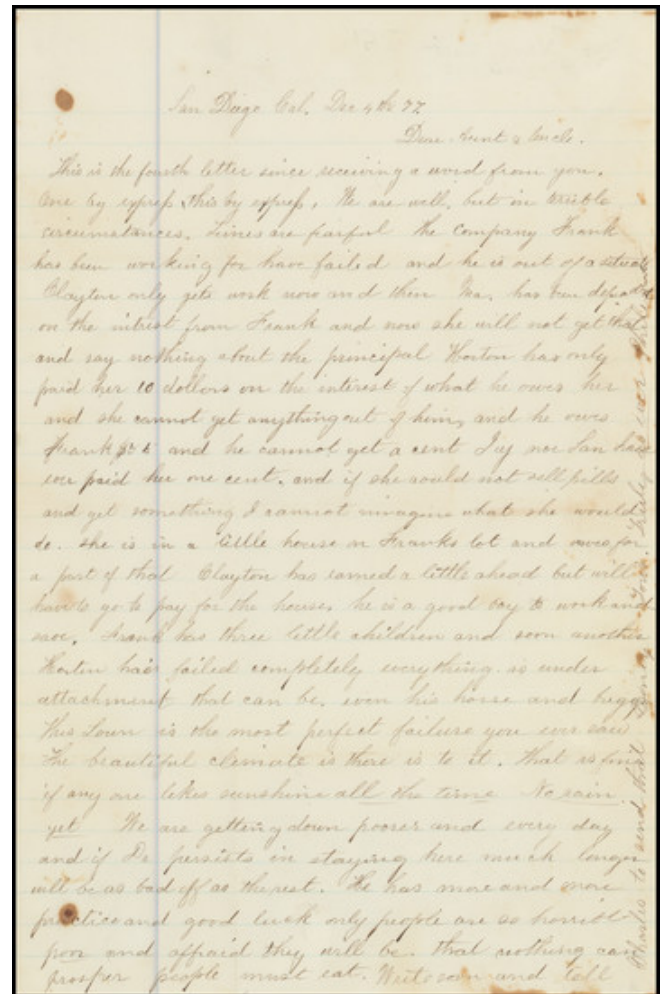 San Diego Cal. Dec 4th 77
Dear Aunt & Uncle.
This is the fourth letter since receiving a word from you.
one by express, this by express. We are well, but in
circumstances. Times are fearful the company Frank
has been working for have failed and he is out of a
Clayton only gets work now and then Ma. has been
on the intrest from Frank and now she will not get that
and say nothing about the principal Horton has only
paid her 10 dollars on the interest of what he owes her
and she cannot get anything out of him, and he owes
Frank and he cannot get a cent nor San have
ever paid her one cent. and if she could not sell pills
and get something I cannot immagine what she would
do. she is in a little house on Franks lot and owes for
a part of that Clayton has earned a little ahead but will
have to go to pay for the house. he is a good boy to work and
save. Frank has three little children and soon another
Horton has failed completely everything is under
attachment that can be. even his horse and
This Town is the most perfect failure you ever saw
The beautiful climate is there is to it. that is fine
if any one likes sunshine all the time No rain
yet We are getting down poorer and every day
and if Dr persists in staying here much longer
will be as bad off as the rest. He has more and more
practice and good luck only people are so
poor and affraid they will be. that nothing can
prosper people must eat. Write soon and tell
Charles to send that